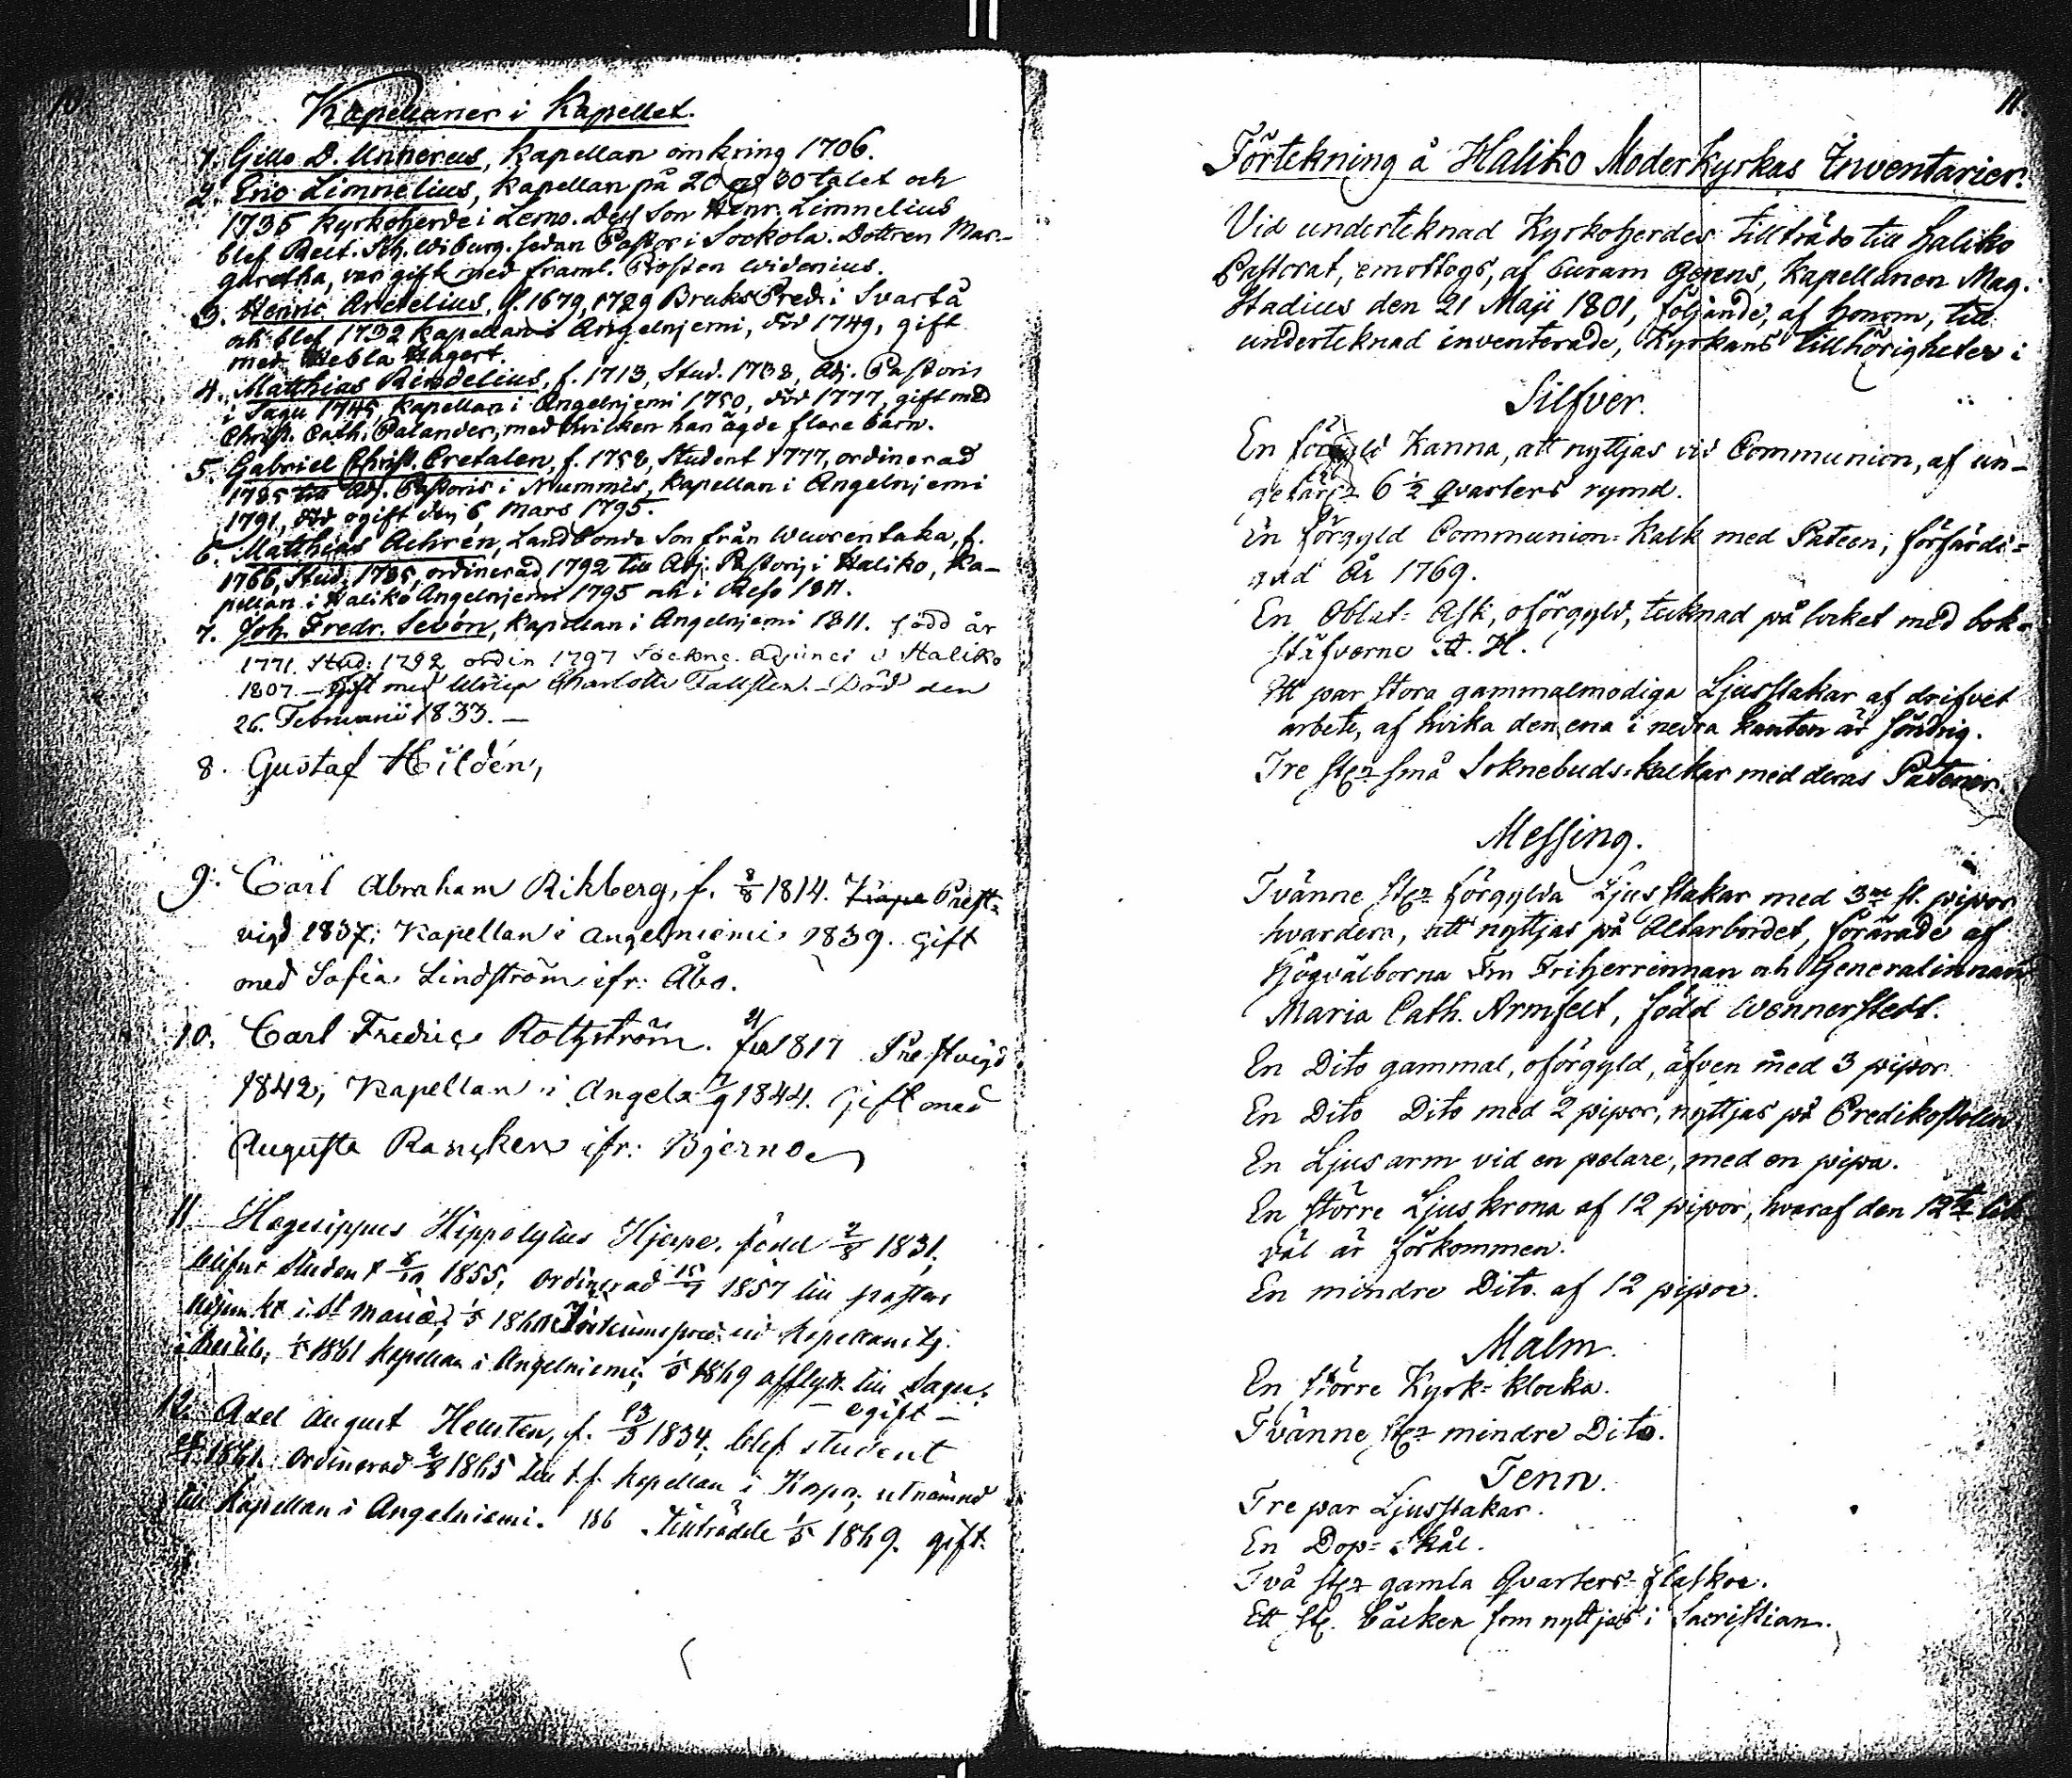 10.
Kapellaner i Kapellet.
1. Gillo D. Unnerus, Kapellan omkring 1706.
2. Eric Limnelius, Kapellan på 20 och 30 talet och
1735 Kyrkoherde i Lemo. Dess Son Henr. Limnelius
blef Rect. Sch. Wiburg. sedan Pastor i Sockola. Dottren Mar-
garetha, var gift med framl. Prosten Widenius.
3. Henric Aretelius, f. 1679, 1729 Bruks Pred. i Svartå
och blef 1732 Kapellan i Angelnjemi, död 1749, gift
med Hebla Hagert.
4. Matthias Rindelius, f. 1713, Stud. 1738, Adj. Pastoris
i Sagu 1745, Kapellan i Angelnjemi 1750, död 1777, gift med
Christ. Cath. Palander, med hvilken han ägde flere barn.
5. Gabriel Christ. Cretalen, f. 1758, Student 1777, ordinerad
1785 till Adj. Pastoris i Nummis, Kapellan i Angelnjemi
1791, död ogift den 6 Mars 1795.
6. Matthias Achrén, Landbonde Son från Wuorentaka, f.
1766, Stud. 1785, ordinerad 1792 till Adj. Pastoris i Haliko, Ka-
pellan i Haliko Angelnjemi 1795 och i Reso 1811.
7. Joh. Fredr. Sevón, Kapellan i Angelnjemi 1811. född år
1771. Stud: 1792 ordin 1797 Sockne Adjunct i Haliko
1807. – Gift med Ulrica Charlotta Fallsten. – Död den
26. Februarii 1833. –
8. Gustaf Hildén,
9. Carl Abraham Rikberg, f. 8/8 1814. Prest-
vigd 1837; Kapellan i Angelniemi 1839. Gift
med Sofia Lindström ifr: Åbo.
10. Carl Fredric Rottström. 1817 Prestvigd
1842, Kapellan i Angela 1844. Gift med
Augusta Rancken ifr: Bjerno
11 Hegesippus Hippolytus Hjerpe, född 2/8 1831,
blifvit student 1855; ordinerad 1857 till pastors
Adjunkt i St Marie, 1/5 1860 vid Kapellans tj.
1/5 1861 Kapellan i Angelniemi; 1/5 1869 afflytt. till Sagu.
– ogift –
12. Axel August Hellsten, f. 23/3 1834; blef student
1861. Ordinerad 2/8 1865 till t.f. Kapellan i Korpo; utnämnd
till Kapellan i Angelniemi. 186 Tillträdde 1/5 1869. gift.
11.
Förtekning å Haliko Moderkyrkas Inventarier.
Vid underteknad Kyrkoherdes tillträde till Haliko
Pastorat, emottogs, af Curam Gerens, Kapellanen Mag.
Stadius den 21 Maji 1801, följande, af honom, till
underteknad inventerade, Kyrkans tillhörigheter i
Silfver.
En förgyld Kanna, att nyttjas vid Communion, af un-
gefär 6 1/2 qvarters rymd.
En förgyld Communion-Kalk med Pateen, förfärdi-
gad År 1769.
En Oblat-Ask, oförgyld, teknad på locket med bok-
stäfverne A. H.
Ett par stora gammalmodiga Ljusstakar af drifvet
arbete, af hvilka den ena i nedra kanten är söndrig.
Tre st. små Soknebuds-kalkar med deras Patener.
Messing.
Tvänne st. förgylda Ljusstakar med 3ne st. pipor
hvardera, att nyttjas på Altarbordet, förärade af
Högvälborna Fru Friherrinnan och Generalinnan
Maria Cath. Armfelt, född Wennerstedt.
En Dito gammal, oförgyld, äfven med 3 pipor.
En Dito Dito med 2 pipor, nyttjas på Predikostolen.
En Ljusarm vid en pelare, med en pipa.
En Större Ljuskrona af 12 pipor, hvaraf den 12te lik
väl är förkommen.
En mindre Dito. af 12 pipor.
Malm.
En större Kyrk-klocka.
Tvänne st. mindre Dito.
Tenn.
Tre par Ljusstakar.
En Dop-Skål.
Två st. gamla Qvarters-flaskor.
Ett st. bäcken som nyttjas i Sacristian.